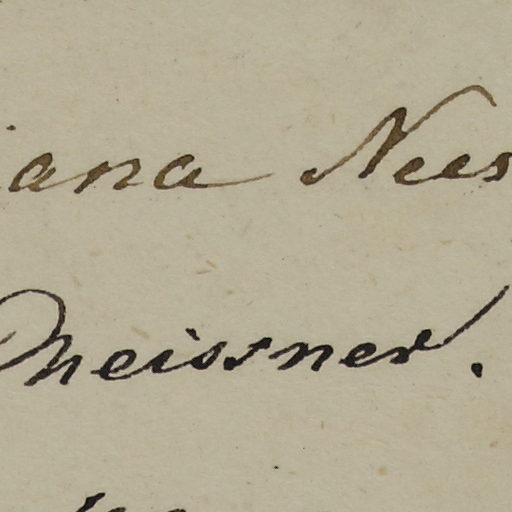 iana Nees
Meissner.